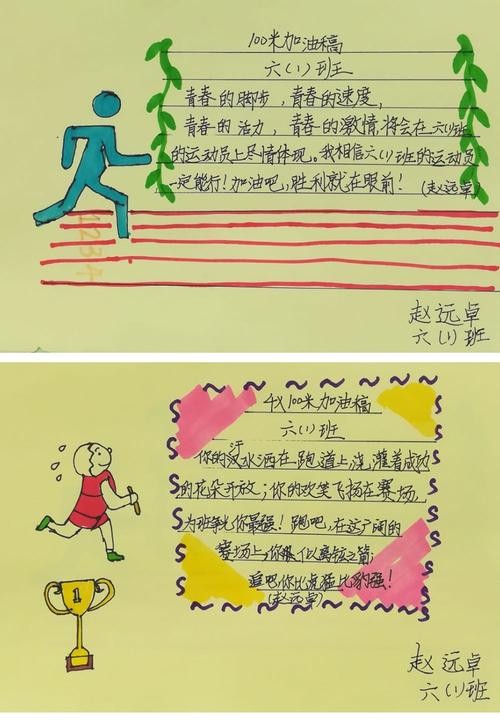 100米加油稿
六(1)班
青春的脚步，青春的速度，
青春的活力，青春的激情，将会在六(1)班
的运动员上尽情体现。我相信六(1)班的运动员
一定能行！加油吧，胜利就在眼前！(赵远卓)
1234
赵远卓
六(1)班
4x100米加油稿
六(1)班
你的汗水洒在跑道上，浇灌着成功
的花朵开放；你的欢笑飞扬在赛场，
为班争光你最强！跑吧，在这广阔的
赛场上，你似离弦之箭
追吧你比虎猛比豹强！
(赵远卓)
1
赵远卓
六(1)班